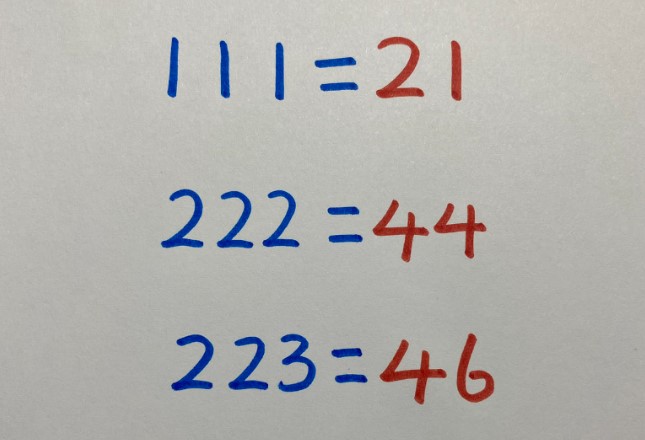 111=21
222=44
223=46